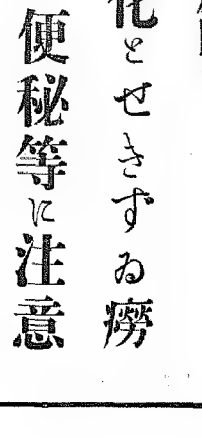 化とせきずゐ癆
便秘等に注意